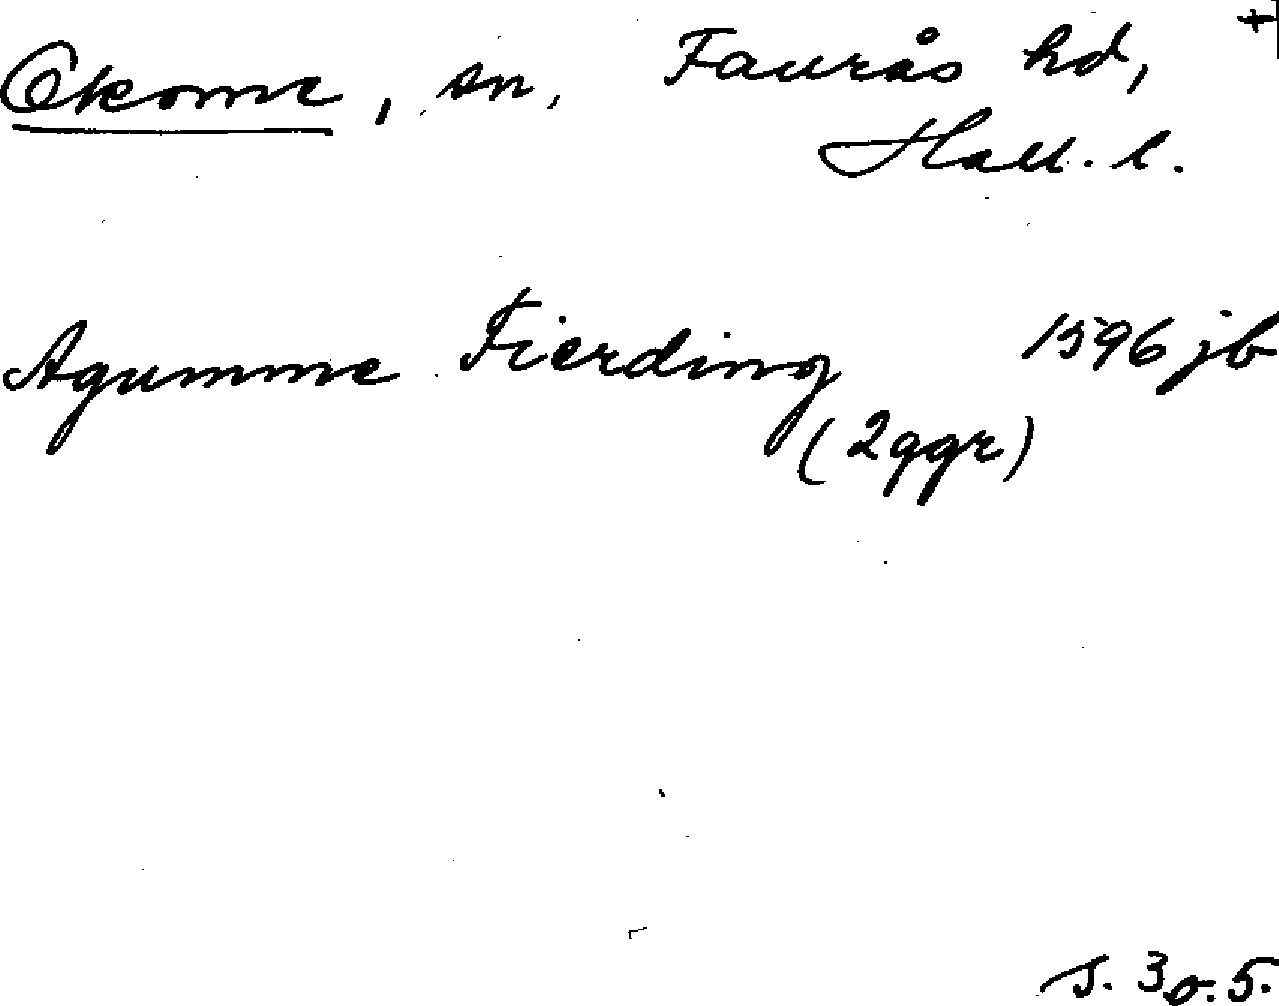 Okome, sn, Faurås hd, +
Hall. l.
Agumme Fierding 1596 jb
(2ggr)
s. 3 o. 5.